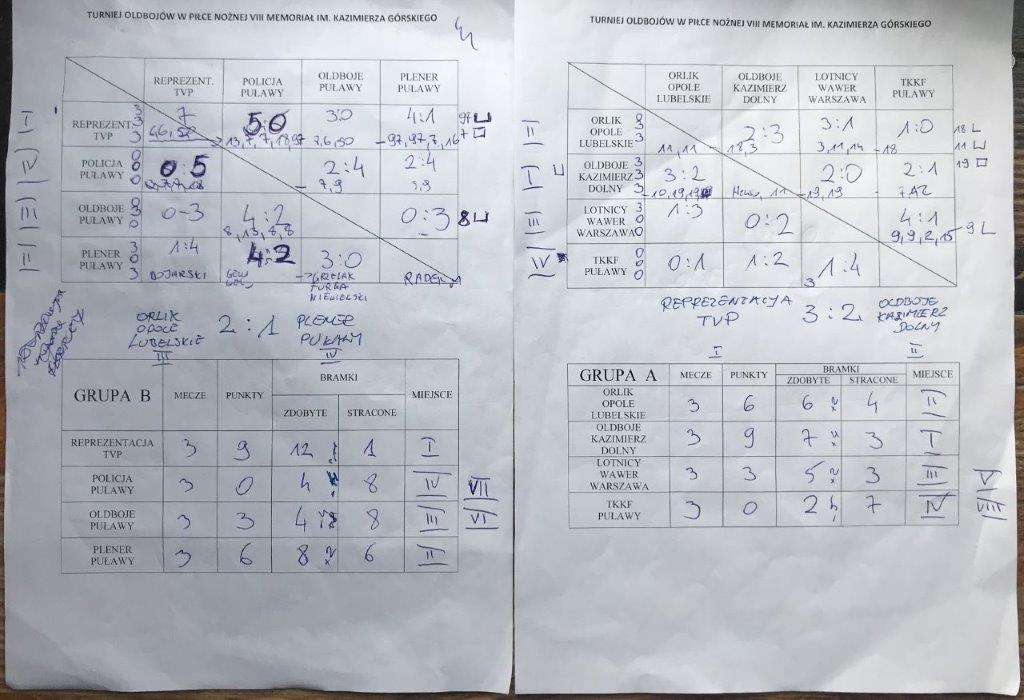 TURNIEJ OLDBOJÓW W PIŁCE NOŻNEJ VIII MEMORIAŁ IM. KAZIMIERZA GÓRSKIEGO
REPREZENT. TVP POLICJA PUŁAWY OLDBOJE PUŁAWY PLENER PUŁAWY
I REPREZENT. TVP 3 3 3 7 5:0 3:0 4:1
13,7,7,18,97 7,6,50 97,97,7,16
IV POLICJA PUŁAWY 0 0 0 0:5 2:4 2:4
7,9 9,9
III OLDBOJE PUŁAWY 0 3 0 0-3 4:2 0:3 8
8,13,8,8
II PLENER PUŁAWY 3 0 3 1:4 4:2 3:0
BOJARSKI GRZELAK
ORLIK OPOLE LUBELSKIE 2:1 PLENER PUŁAWY
III IV
GRUPA B MECZE PUNKTY BRAMKI MIEJSCE
ZDOBYTE STRACONE
REPREZENTACJA TVP 3 9 12 1 I
POLICJA PUŁAWY 3 0 4 8 IV VII
OLDBOJE PUŁAWY 3 3 4 8 III VI
PLENER PUŁAWY 3 6 8 6 II
TURNIEJ OLDBOJÓW W PIŁCE NOŻNEJ VIII MEMORIAŁ IM. KAZIMIERZA GÓRSKIEGO
ORLIK OPOLE LUBELSKIE OLDBOJE KAZIMIERZ DOLNY LOTNICY WAWER WARSZAWA TKKF PUŁAWY
II ORLIK OPOLE LUBELSKIE 0 3 3 2:3 3:1 1:0 18
11,11 18,3 3,11,14 18 11
I OLDBOJE KAZIMIERZ DOLNY 3 3 3 3:2 2:0 2:1 19
10,19,19 11 19,19
III LOTNICY WAWER WARSZAWA 3 0 0 1:3 0:2 4:1
9,9,2,15 9
IV TKKF PUŁAWY 0 0 0 0:1 1:2 1:4
3
REPREZENTACJA TVP 3:2 OLDBOJE KAZIMIERZ DOLNY
I II
GRUPA A MECZE PUNKTY BRAMKI MIEJSCE
ZDOBYTE STRACONE
ORLIK OPOLE LUBELSKIE 3 6 6 4 II
OLDBOJE KAZIMIERZ DOLNY 3 9 7 3 I
LOTNICY WAWER WARSZAWA 3 3 5 3 III V
TKKF PUŁAWY 3 0 2 7 IV VIII